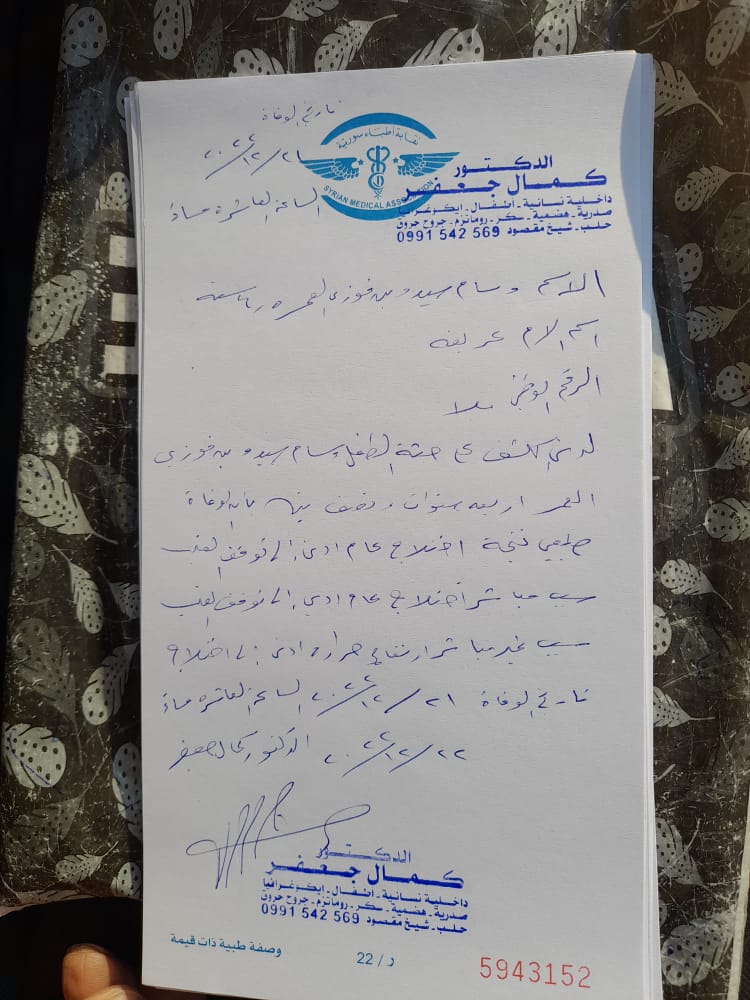 تاريخ الوفاة
٢٠٢٢/١٢/٢١
الساعة العاشرة مساءً
نقابة أطباء سورية
SYRIAN MEDICAL ASSOCIATION
الدكتور
كمال جعفر
داخلية نسائية - أطفال - ايكوغرافيا
صدرية - هضمية - سكر - روماتزم - جروح حروق
حلب - شيخ مقصود 0991 542 569
الاسم وسام سيدو بن فوزي العمر
اسم الام عريفه
الرقم الوطني بلا
لدى الكشف على جثة الطفل وسام سيدو بن فوزي
العمر اربعه سنوات ونصف بأن الوفاة
طبيعي نتيجة اختلاج عام ادى إلى توقف القلب
سبب مباشر اختلاج عام ادى إلى توقف القلب
سبب غير مباشر ارتفاع حراره ادى إلى اختلاج
تاريخ الوفاة ٢٠٢٢/١٢/٢١ الساعة العاشره مساءً
٢٠٢٢/١٢/٢٢ الدكتور كمال جعفر
الدكتور
كمال جعفر
داخلية نسائية - أطفال - ايكوغرافيا
صدرية - هضمية - سكر - روماتزم - جروح حروق
حلب - شيخ مقصود 0991 542 569
وصفة طبية ذات قيمة
د / 22
5943152